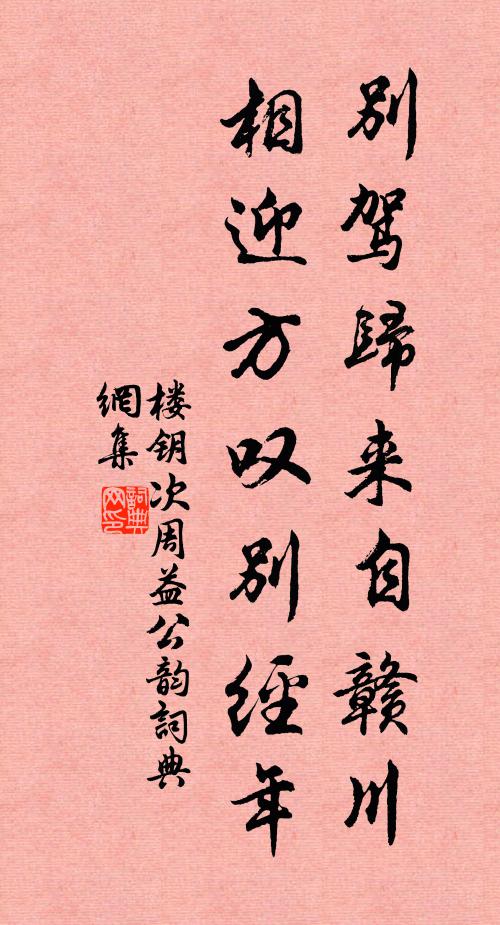 别驾歸来自赣川
相迎方叹别經年
楼钥次周益公韵詞典
網集
詞典
网印